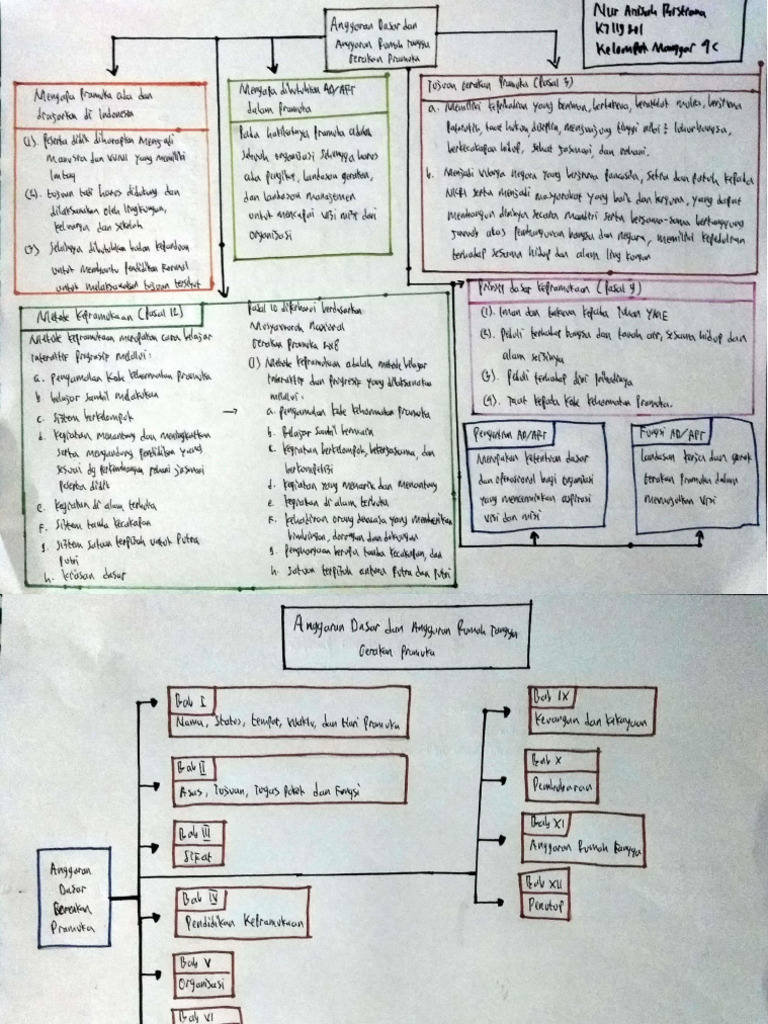 Anggaran Dasar dan
Anggaran Rumah Tangga
Gerakan Pramuka
Nur
K7119201
Kelompok Manggar 9C
Mengapa Pramuka ada dan
di Indonesia
(1). Peserta didik diharapkan menjadi
manusia dan yang memiliki
(2). tujuan tadi harus didukung dan
dilaksanakan oleh lingkungan,
keluarga dan sekolah
(3) Sehingga dibutuhkan kepanduan
untuk membantu pendidikan formal
untuk melaksanakan tujuan tersebut
Mengapa dibutuhkan AD/ART
dalam Pramuka
Pada hakikatnya Pramuka adalah
sebuah organisasi sehingga harus
ada pengikat, landasan gerakan,
dan landasan manajemen
untuk mencapai visi misi dari
organisasi
Tujuan Gerakan Pramuka (Pasal 3)
a. Memiliki kepribadian yang beriman, bertakwa, berakhlak mulia, berjiwa
Patriotik, taat hukum, disiplin, menjunjung tinggi nilai² luhur bangsa,
berkecakapan hidup, sehat jasmani, dan rohani.
b. Menjadi warga negara yang berjiwa pancasila, setia dan patuh kepada
NKRI serta menjadi masyarakat yang baik dan berguna, yang dapat
membangun dirinya secara mandiri serta bersama-sama bertanggung
jawab atas pembangunan bangsa dan negara, memiliki kepedulian
terhadap sesama hidup dan alam lingkungan
Metode Kepramukaan (Pasal 12)
Metode kepramukaan merupakan cara belajar
interaktif progresif melalui:
a. pengamalan kode kehormatan pramuka
b. belajar sambil melakukan
c. sistem berkelompok
d. kegiatan menantang dan meningkatkan
serta mengandung pendidikan yang
sesuai dg perkembangan rohani jasmani
peserta didik
e. kegiatan di alam terbuka
f. sistem tanda kecakapan
g. sistem satuan terpisah untuk Putra
Putri
h. kiasan dasar
→
Pasal 10 diperbarui berdasarkan
Musyawarah Nasional
Gerakan Pramuka
(1) Metode kepramukaan adalah metode belajar
interaktif dan progresif yang dilaksanakan
melalui:
a. pengamalan kode kehormatan pramuka
b. Belajar sambil
c. kegiatan berkelompok, bekerjasama, dan
berkompetisi
d. kegiatan yang menarik dan menantang
e. kegiatan di alam terbuka
f. kehadiran orang dewasa yang memberikan
bimbingan, dorongan dan dukungan
g. penghargaan berupa tanda kecakapan, dan
h. satuan terpisah antara Putra dan Putri
Prinsip dasar kepramukaan (Pasal 9)
(1). Iman dan takwa kepada Tuhan YME
(2). Peduli terhadap bangsa dan tanah air, sesama hidup dan
alam seisinya
(3). Peduli terhadap diri Pribadinya
(4). Taat kepada Kode Kehormatan Pramuka.
Pengertian AD/ART
Merupakan ketentuan dasar
dan operasional bagi organisasi
yang mencerminkan aspirasi
visi dan misi
Fungsi AD/ART
Landasan kerja dan gerak
Gerakan Pramuka dalam
mewujudkan visi
Anggaran Dasar dan Anggaran Rumah Tangga
Gerakan Pramuka
Anggaran
Dasar
Gerakan
Pramuka
Bab I
Nama, Status, tempat, Waktu, dan Hari Pramuka
Bab II
Asas, Tujuan, Tugas Pokok dan Fungsi
Bab III
Sifat
Bab IV
Pendidikan Kepramukaan
Bab V
Organisasi
Bab VI
Bab IX
Keuangan dan Kekayaan
Bab X
Pembubaran
Bab XI
Anggaran Rumah Tangga
Bab XII
Penutup